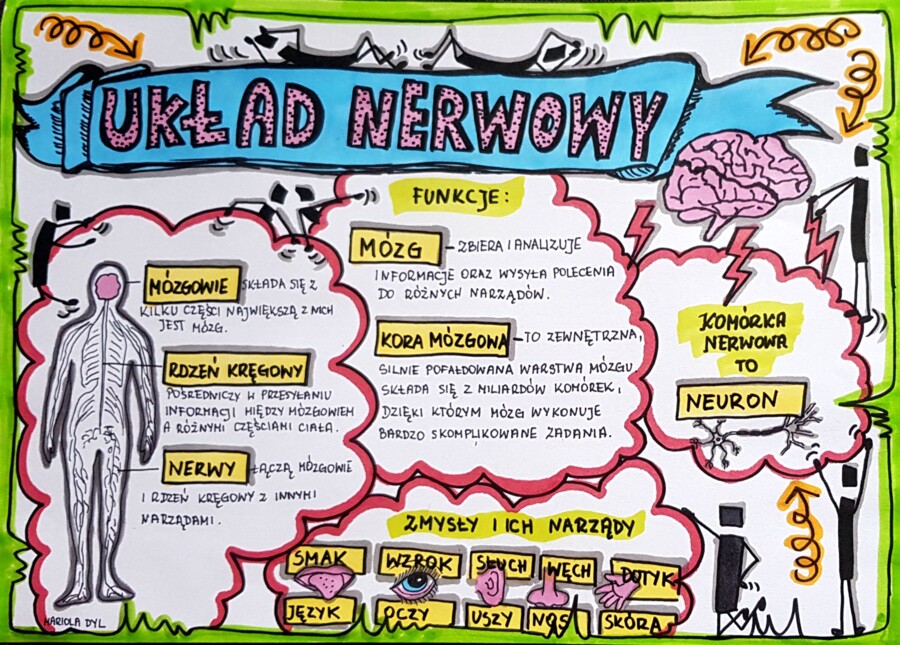 UKŁAD NERWOWY
MÓZGOWIE SKŁADA SIĘ Z
KILKU CZĘŚCI NAJWIĘKSZĄ Z NICH
JEST MÓZG.
RDZEŃ KRĘGOWY
POŚREDNICZY W PRZESYŁANIU
INFORMACJI MIĘDZY MÓZGOWIEM
A RÓŻNYMI CZĘŚCIAMI CIAŁA.
NERWY ŁĄCZĄ MÓZGOWIE
I RDZEŃ KRĘGOWY Z INNYMI
NARZĄDAMI.
FUNKCJE:
MÓZG – ZBIERA I ANALIZUJE
INFORMACJE ORAZ WYSYŁA POLECENIA
DO RÓŻNYCH NARZĄDÓW.
KORA MÓZGOWA – TO ZEWNĘTRZNA,
SILNIE POFAŁDOWANA WARSTWA MÓZGU.
SKŁADA SIĘ Z MILIARDÓW KOMÓREK,
DZIĘKI KTÓRYM MÓZG WYKONUJE
BARDZO SKOMPLIKOWANE ZADANIA.
KOMÓRKA
NERWOWA
TO
NEURON
ZMYSŁY I ICH NARZĄDY
SMAK WZROK SŁUCH WĘCH DOTYK
JĘZYK OCZY USZY NOS SKÓRA
MARIOLA DYL